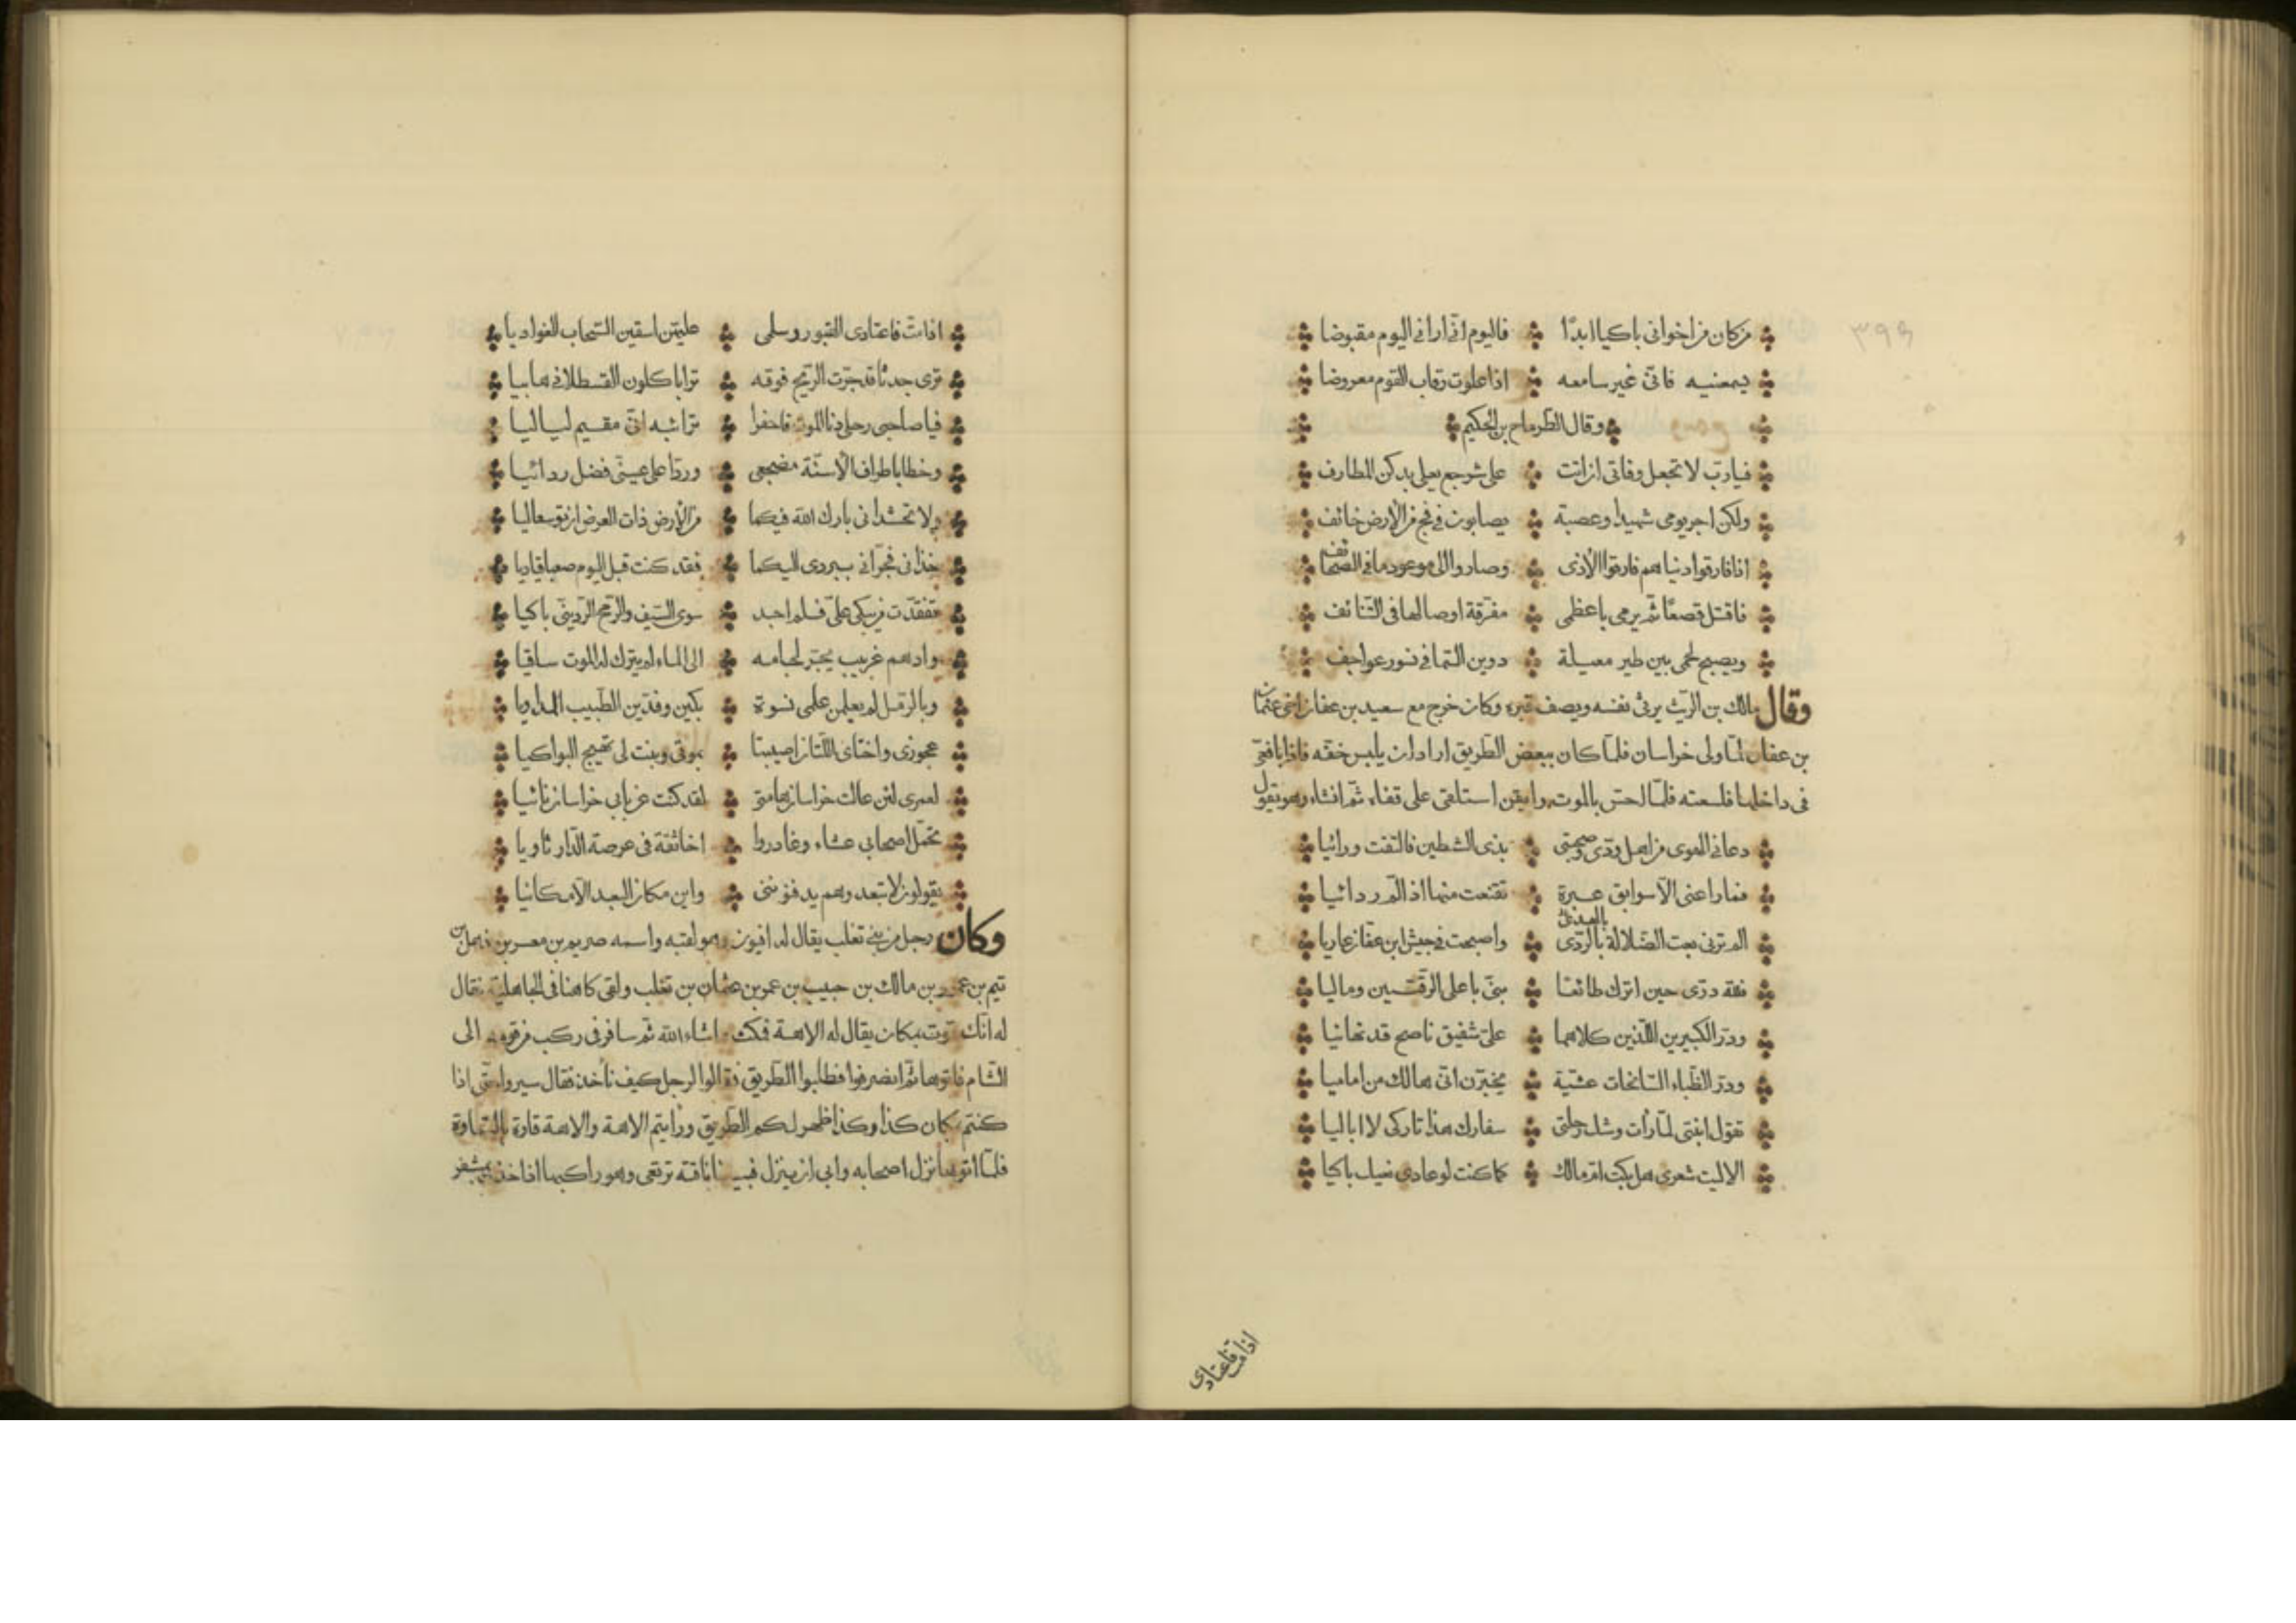 ٣٩٩
من كان من اخوانى باكيا ابدًا فاليوم انّى ارانى اليوم مقبوضا
يسمعنيه فانّى غير سامعه اذا علوت رقاب القوم معروضا
وقال الطرماح بن الحكيم
فيارب لا تجعل وفاتى ان اتت على شرجع يعلى بدكن المطارف
ولكن اجر يومى شهيدا وعصبة يصابون فى فج من الأرض خائف
اذا فارقوا دنياهم فارقوا الأذى وصاروا الى موعود ما فى الصحائف
فاقتل قصعًا ثم يرمى باعظمى مفرقة اوصالها فى التنائف
ويصبح لحمى بين طير مسيلة دوين السما فى نسور عواجف
وقال مالك بن الريث يرثى نفسه ويصف قبره وكان خرج مع سعيد بن عفان اخى عثمان
بن عفان لمّا ولى خراسان فلمّا كان ببعض الطريق اراد ان يلبس خفّه فاذا بافعى
فى داخلها فلسعته فلمّا احسّ بالموت وايقن استلقى على قفاه ثم انشاء وهو يقول
دعانى الهوى من اهل ودّى وصحبتى بذى الشطين فالتفت ورائيا
فما راعنى الّا سوابق عبرة تقنعت منها اذ الم ردائيا
الم ترنى بعت الضلالة بالهدى بالردى واصبحت فى جيش ابن عفان غاريا
فلله درّى حين اترك طائعا بنىّ باعلى الرقمتين وماليا
ودرّ الكبيرين اللّذين كلاهما علىّ شفيق ناصح قد نهانيا
ودرّ الظباء السانحات عشيّة يخبرن انّى هالك من اماميا
تقول ابنتى لمّا رأت وشك رحلتى سفارك هذا تاركى لا ابا ليا
الا ليت شعرى هل بكت ام مالك كما كنت لو عادى نعيك باكيا
اذا مت فاعتادى
اذا مت فاعتادى القبور وسلمى عليهن اسقين السحاب الغواديا
ترى جدثا قد جرّت الريح فوقه ترابا كلون القسطلانى هابيا
فيا صاحبى رحلى دنا الموت فاحفرا ترابيه انّى مقيم لياليا
وخطا باطراف الأسنّة مضجعى وردّا على عينىّ فضل ردائيا
ولا تحسدانى بارك الله فيكما من الأرض ذات العرض ان توسعا ليا
خذانى فجرّانى ببردى اليكما فقد كنت قبل اليوم صعبا قياديا
تفقدت من يبكى علىّ فلم اجد سوى السيف والرمح الردينىّ باكيا
وادهم غريب يجتر لجامه الى الماء لم يترك له الموت ساقيا
وبالرمل لم يعلمن علمى نسوة بكين وفدّين الطبيب المداويا
عجوزى واختاى اللتان اصيبتا بموتى وبنت لى تهيج البواكيا
لعمرى لئن عالت خراسان هامتى لقد كنت عن بابى خراسان نائيا
تحمّل اصحابى عشاء وغادروا اخا ثقة فى عرصة الدار ثاويا
يقولون لا تبعد وهم يدفنوننى واين مكان البعد الّا مكانيا
وكان رجل من بنى تغلب يقال له افيون وهو لقبه واسمه صريم بن معسر بن ذهل بن
تيم بن عمرو بن مالك بن حبيب بن عمرو بن عثمان بن تغلب ولقى كاهنا فى الجاهلية فقال
له انّك تموت بمكان يقال له الاهة فمكث ما شاء الله ثم سافر فى ركب من قومه الى
الشام فاتوها ثم انصرفوا فضلّوا الطريق فقالوا لرجل كيف نأخذ فقال سيروا حتى اذا
كنتم بمكان كذا وكذا ظهر لكم الطريق ورايتم الاهة والاهة قارة بالسماوة
فلمّا اتوها نزل اصحابه وابى ان ينزل فبينا ناقته ترتعى وهو راكبها اذا خذ بمشفر